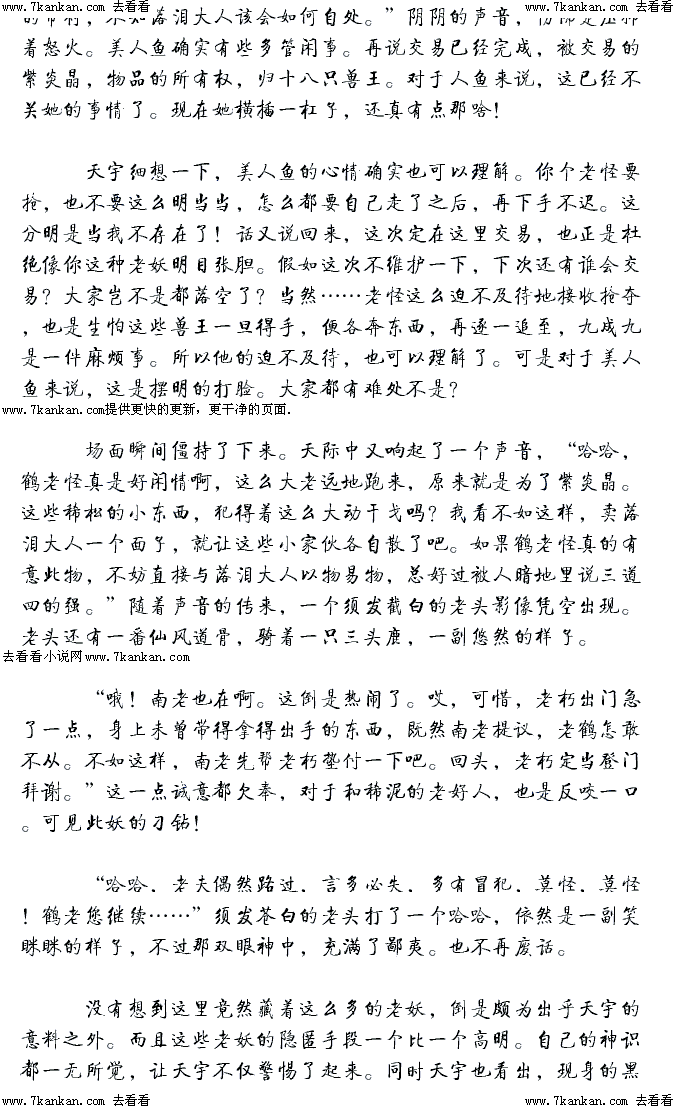 www.7kankan.com 去看看 www.7kankan.com 去看看
着怒火。美人鱼确实有些多管闲事。再说交易已经完成，被交易的
紫炎晶，物品的所有权，归十八只兽王。对于人鱼来说，这已经不
关她的事情了。现在她横插一杠子，还真有点那啥！
天宇细想一下，美人鱼的心情确实也可以理解。你个老怪要
抢，也不要这么明当当，怎么都要自己走了之后，再下手不迟。这
分明是当我不存在了！话又说回来，这次定在这里交易，也正是杜
绝像你这种老妖明目张胆。假如这次不维护一下，下次还有谁会交
易？大家岂不是都落空了？当然……老怪这么迫不及待地接收抢夺
，也是生怕这些兽王一旦得手，便各奔东西，再逐一追至，九成九
是一件麻烦事。所以他的迫不及待，也可以理解了。可是对于美人
鱼来说，这是摆明的打脸。大家都有难处不是？
www.7kankan.com提供更快的更新，更干净的页面.
场面瞬间僵持了下来。天际中又响起了一个声音，“哈哈，
鹤老怪真是好闲情啊，这么大老远地跑来，原来就是为了紫炎晶。
这些稀松的小东西，犯得着这么大动干戈吗？我看不如这样，卖落
泪大人一个面子，就让这些小家伙各自散了吧。如果鹤老怪真的有
意此物，不妨直接与落泪大人以物易物，总好过被人暗地里说三道
四的强。”随着声音的传来，一个须发截白的老头影像凭空出现。
老头还有一番仙风道骨，骑着一只三头鹿，一副悠然的样子。
去看看小说网www.7kankan.com
“哦！南老也在啊。这倒是热闹了。哎，可惜，老朽出门急
了一点，身上未曾带得拿得出手的东西，既然南老提议，老鹤怎敢
不从。不如这样，南老先帮老朽垫付一下吧。回头，老朽定当登门
拜谢。”这一点诚意都欠奉，对于和稀泥的老好人，也是反咬一口
。可见此妖的刁钻！
“哈哈．老夫偶然路过．言多必失．多有冒犯．莫怪．莫怪
！鹤老您继续……”须发苍白的老头打了一个哈哈，依然是一副笑
眯眯的样子，不过那双眼神中，充满了鄙夷。也不再废话。
没有想到这里竟然藏着这么多的老妖，倒是颇为出乎天宇的
意料之外。而且这些老妖的隐匿手段一个比一个高明。自己的神识
都一无所觉，让天宇不仅警惕了起来。同时天宇也看出，现身的黑
www.7kankan.com 去看看 www.7kankan.com 去看看